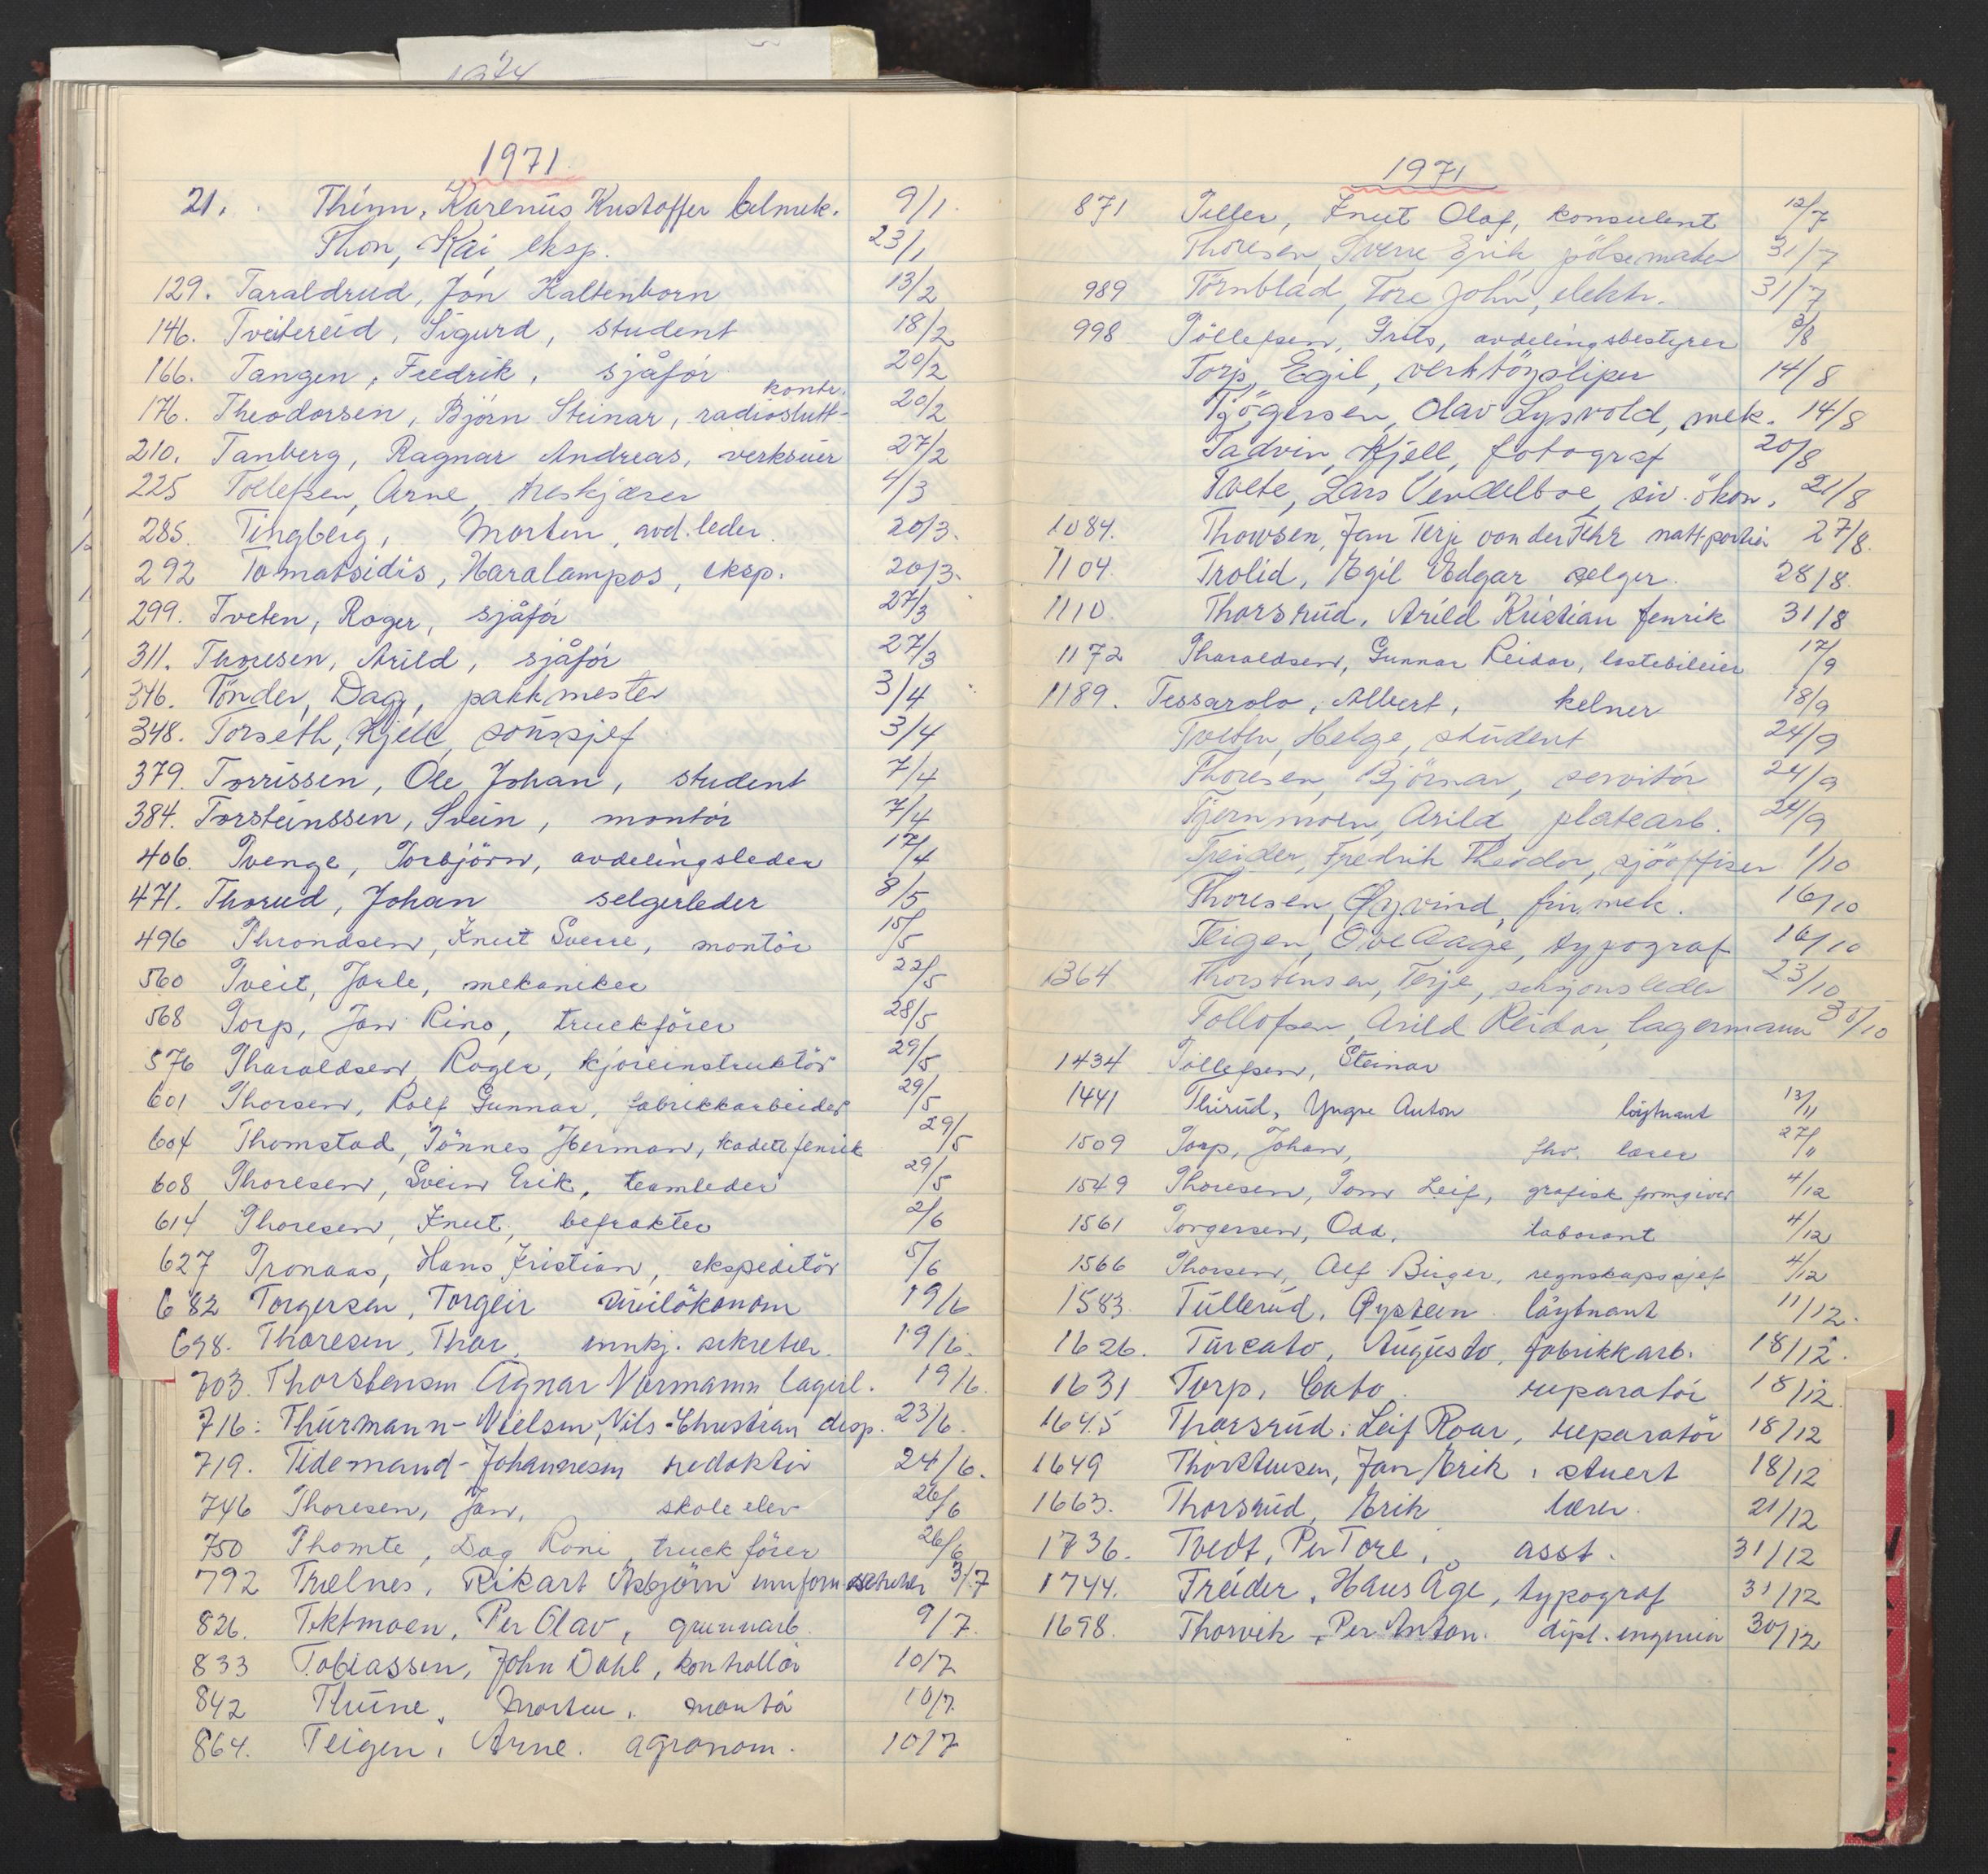 1974
1971
21. Thinn, Karenius Kristoffer bilmek. 9/1
Thon, Kai, eksp. 23/1
129. Taraldrud, Jon Kaltenborn 13/2
146. Tveitereid, Sigurd, student 18/2
166. Tangen, Fredrik, sjåfør 20/2
kontr.
176. Theodorsen, Bjørn Steinar, radioslutt- 20/2
210. Tanberg, Ragnar Andreas, verkseier 27/2
225 Tollefsen, Arne 4/3
285. Tingberg, Morten, avd. leder 20/3.
292 Tomatsidis, Haralampos, eksp. 20/3.
299. Tveten, Roger, sjåfør 27/3
311. Thoresen, Arild, sjåfør 27/3
346. Tönder, Dag, pakkmester 3/4
348. Torseth, Kjell 3/4
379. Torrissen, Ole Johan, student 7/4
384. Torsteinssen, Svein, montör 7/4
406. Tvenge, Torbjörn, avdelingsleder 17/4
471. Thorud, Johan selgerleder 8/5
496 Throndsen, Knut Sverre, montör 15/5
560 Tveit, Jarle, mekaniker 22/5
568 Torp, Jan Rino, truckförer 28/5
576 Tharaldsen, Roger, kjöreinstruktör 29/5
601 Thorsen, Rolf Gunnar, fabrikkarbeider 29/5
604 Thomstad, Tönnes Herman, kadett fenrik 29/5
608 Thoresen, Svein Erik, teamleder 29/5
614 Thoresen, Knut, befrakter 2/6
627 Tronaas, Hans Kristian, ekspeditör 5/6
682 Torgersen, Torgeir siviløkonom 19/6
698. Thoresen, Thor, innkj. sekretær. 19/6.
703. Thorstensen Agnar Normann lagerl. 19/6.
716: Thürmann-Nielsen, Nils-Christian disp. 23/6.
719. Tidemand-Johannesen redaktör 24/6.
746 Thoresen, Jan, skoleelev 26/6
750 Thomte, Dag Roni, truckförer 26/6
792 Trælnes, Rikart Asbjörn 3/7
826. Toktmoen, Per Olav, grunnarb. 9/7.
833 Tobiassen, John Dahl, kontrollör 10/7
842 Thune, Morten, montör 10/7.
864. Teigen, Arne. agronom. 10/7
1971
871 Tiller, Knut Olaf, konsulent 12/7
Thoresen, Sverre Erik, pölsemaker 31/7
989 Törnblad, Tore John, elektr. 31/7
998 Töllefsen, Frits, avdelingsbestyrer 3/8
Torp, Egil, verktöysliper 14/8
Tjögersen, Olav Lysvold, mek. 14/8
Tadvin, Kjell, fotograf 20/8
Tvete, Lars Vendelboe, siv. ökon. 21/8
1084. Thowsen, Jan Terje von der Fehr nattportier 27/8.
1104. Trolid, Egil Edgar selger. 28/8.
1110. Thorsrud, Arild Kristian fenrik 31/8
1172 Tharaldsen, Gunnar Reidar, lastebileier 17/9
1189. Tessarolo, Albert, kelner 18/9
Tveten, Helge, student 24/9
Thoresen, Björnar, servitör 24/9
Tjernmoen, Arild, platearb. 24/9
Treider, Fredrik Theodor, sjöoffiser 1/10
Thoresen, Øyvind, fin.mek. 16/10
Teigen, Ove Aage, typograf 16/10
1364 Thorstensen, Terje, seksjonsleder 23/10
Tollofsen, Arild Reidar, lagermann 30/10
1434 Tollefsen, Steinar
1441 Thirud, Yngve Anton löytnant 13/11
1509 Torp, Johan, fhv. lærer 27/11
1549 Thoresen, Tom Leif, grafisk formgiver 4/12
1561 Torgersen, Odd, laborant 4/12
1566 Thorsen, Alf Birger, regnskapssjef 4/12
1583. Tullerud, Øystein löytnant 11/12.
1626. Turcato, Augusto, fabrikkarb. 18/12.
1631 Torp, Cato. reparatör 18/12.
1645 Thorsrud, Leif Roar, reparatör 18/12
1649 Thorstensen, Jan Erik, stuert 18/12
1663. Thorsrud, Erik lærer. 21/12
1736. Tvedt, Per Tore, asst. 31/12
1744. Treider, Hans Åge, typograf 31/12
1698. Thorvik, Per Anton. dipl. ingeniør 30/12